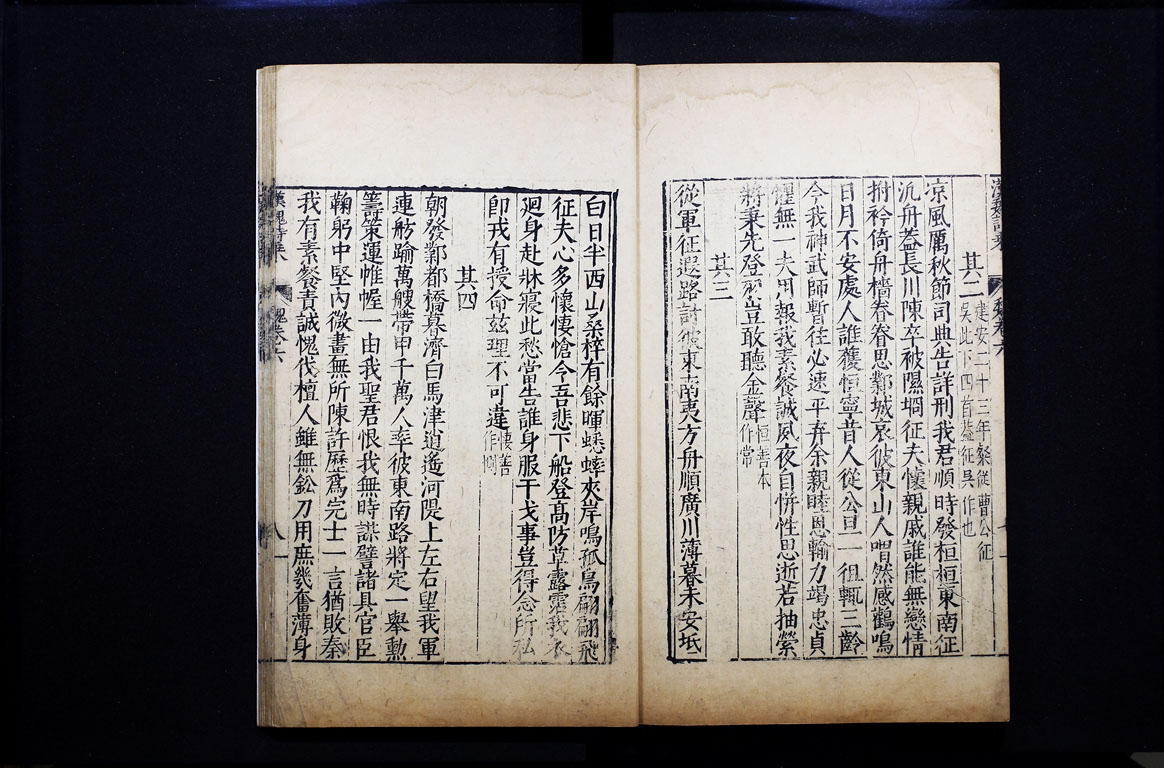 漢魏詩乘
魏卷六
七
其二
建安二十三年粲從曹公征
吳此下四首葢征吳作也
凉風厲秋節司典告詳刑我君順時發桓桓東南征
汎舟葢長川陳卒被隰埛征夫懷親戚誰能無戀情
拊衿倚舟檣眷眷思鄴城哀彼東山人喟然感鸛鳴
日月不安處人誰獲恒寧昔人從公旦一徂輒三齡
今我神武師暫徃必速平弃余親睦恩輸力竭忠貞
懼無一夫用報我素餐誠夙夜自恲性思逝若抽縈
將秉先登羽豈敢聽金聲
恒善本
作常
其三
從軍征遐路討彼東南夷方舟順廣川薄暮未安坻
白日半西山桑梓有餘暉蟋蟀夾岸鳴孤鳥翩翩飛
征夫心多懷悽愴令吾悲下船登高防草露霑我衣
廻身赴牀寢此愁當告誰身服干戈事豈得念所私
即戎有授命兹理不可違
悽善
作惻
其四
朝發鄴都橋暮濟白馬津逍遙河隄上左右望我軍
連舫踰萬艘帶甲千萬人率彼東南路將定一舉勲
籌策運帷幄一由我聖君恨我無時謀譬諸具官臣
鞠躬中堅內微畫無所陳許歷爲完士一言猶敗秦
我有素餐責誠愧伐檀人雖無鉛刀用庶幾奮薄身
漢魏詩乘
魏卷六
八